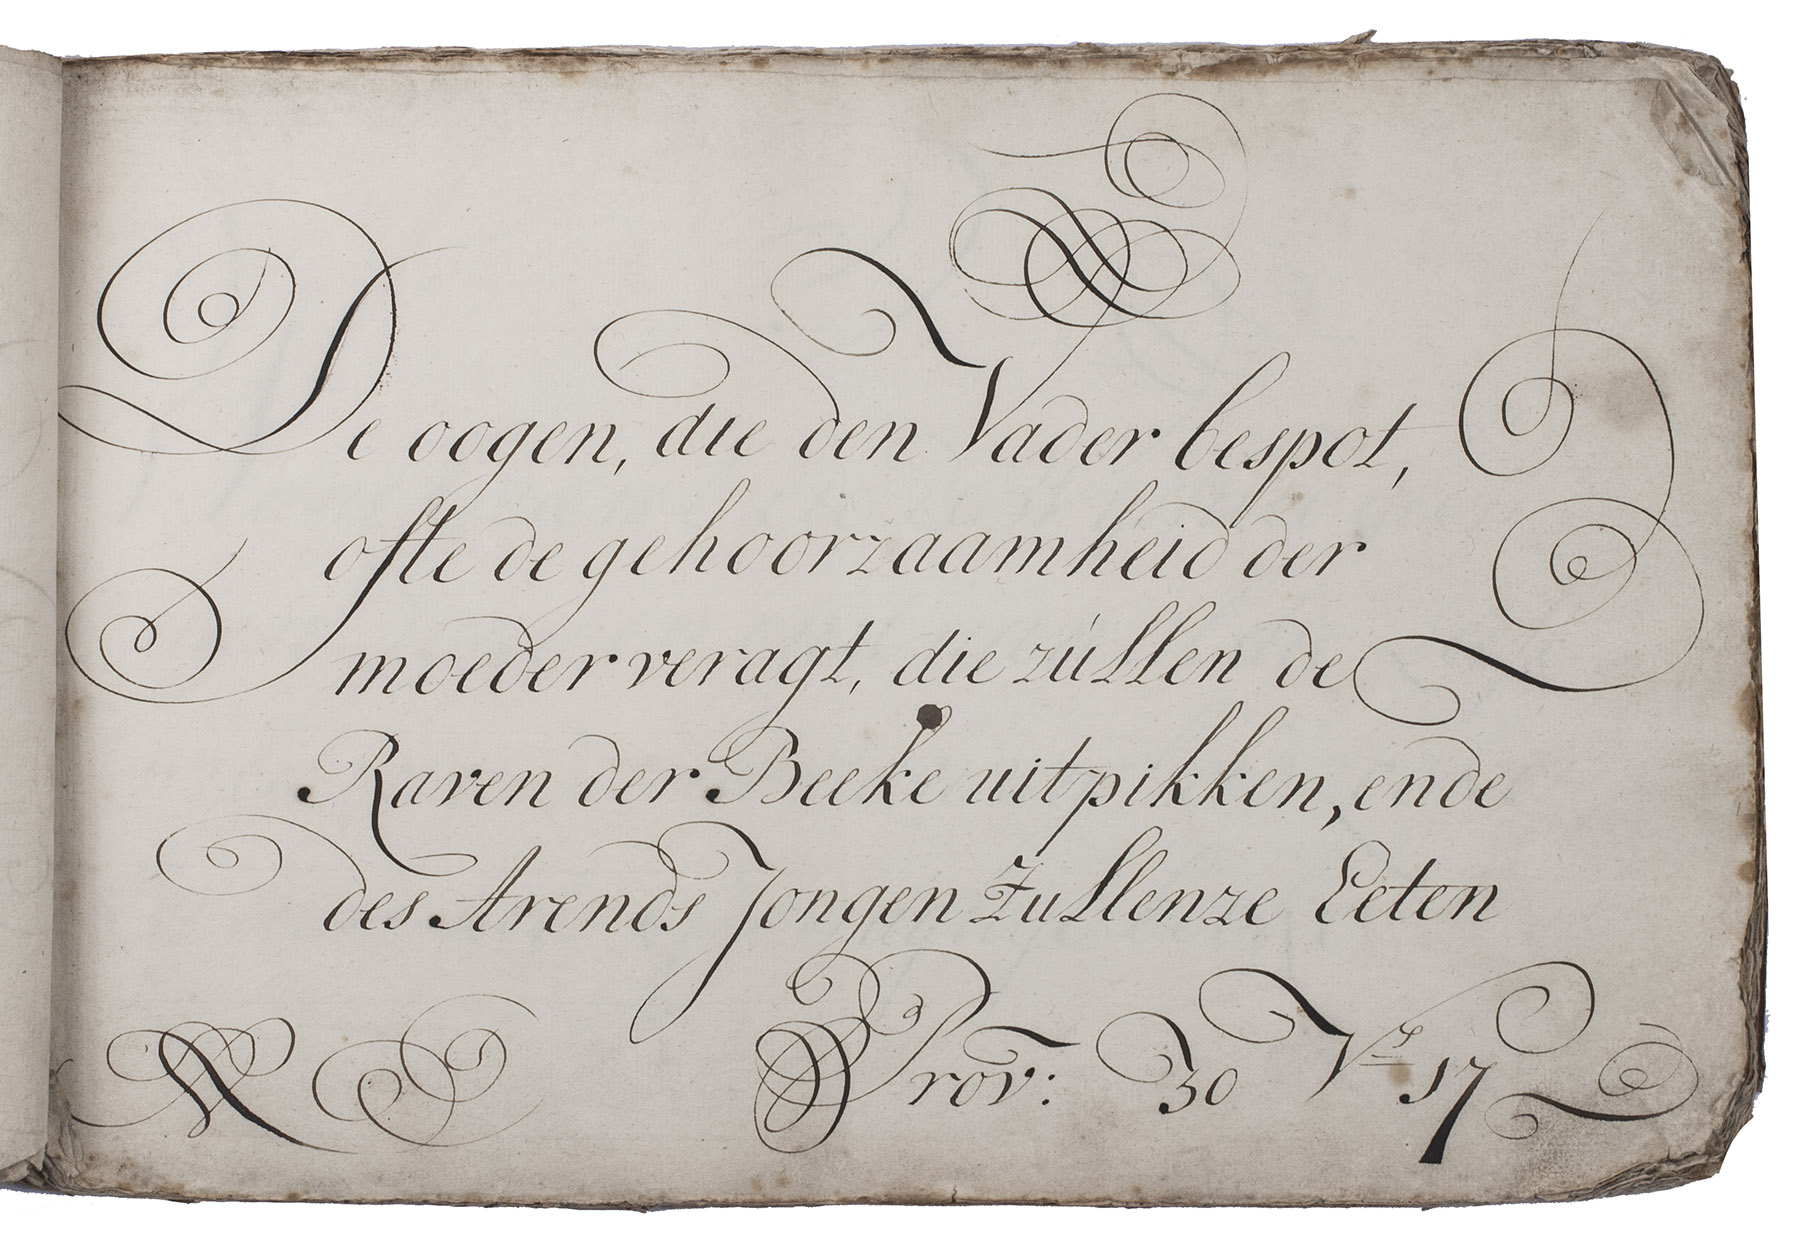 De oogen, die den Vader bespot,
ofte de gehoorzaamheid der
moeder veragt, die zúllen de
Raven der Beeke uitpikken, ende
des Arends Jongen Zullenze Eeten
Prov: 30 Vs 17